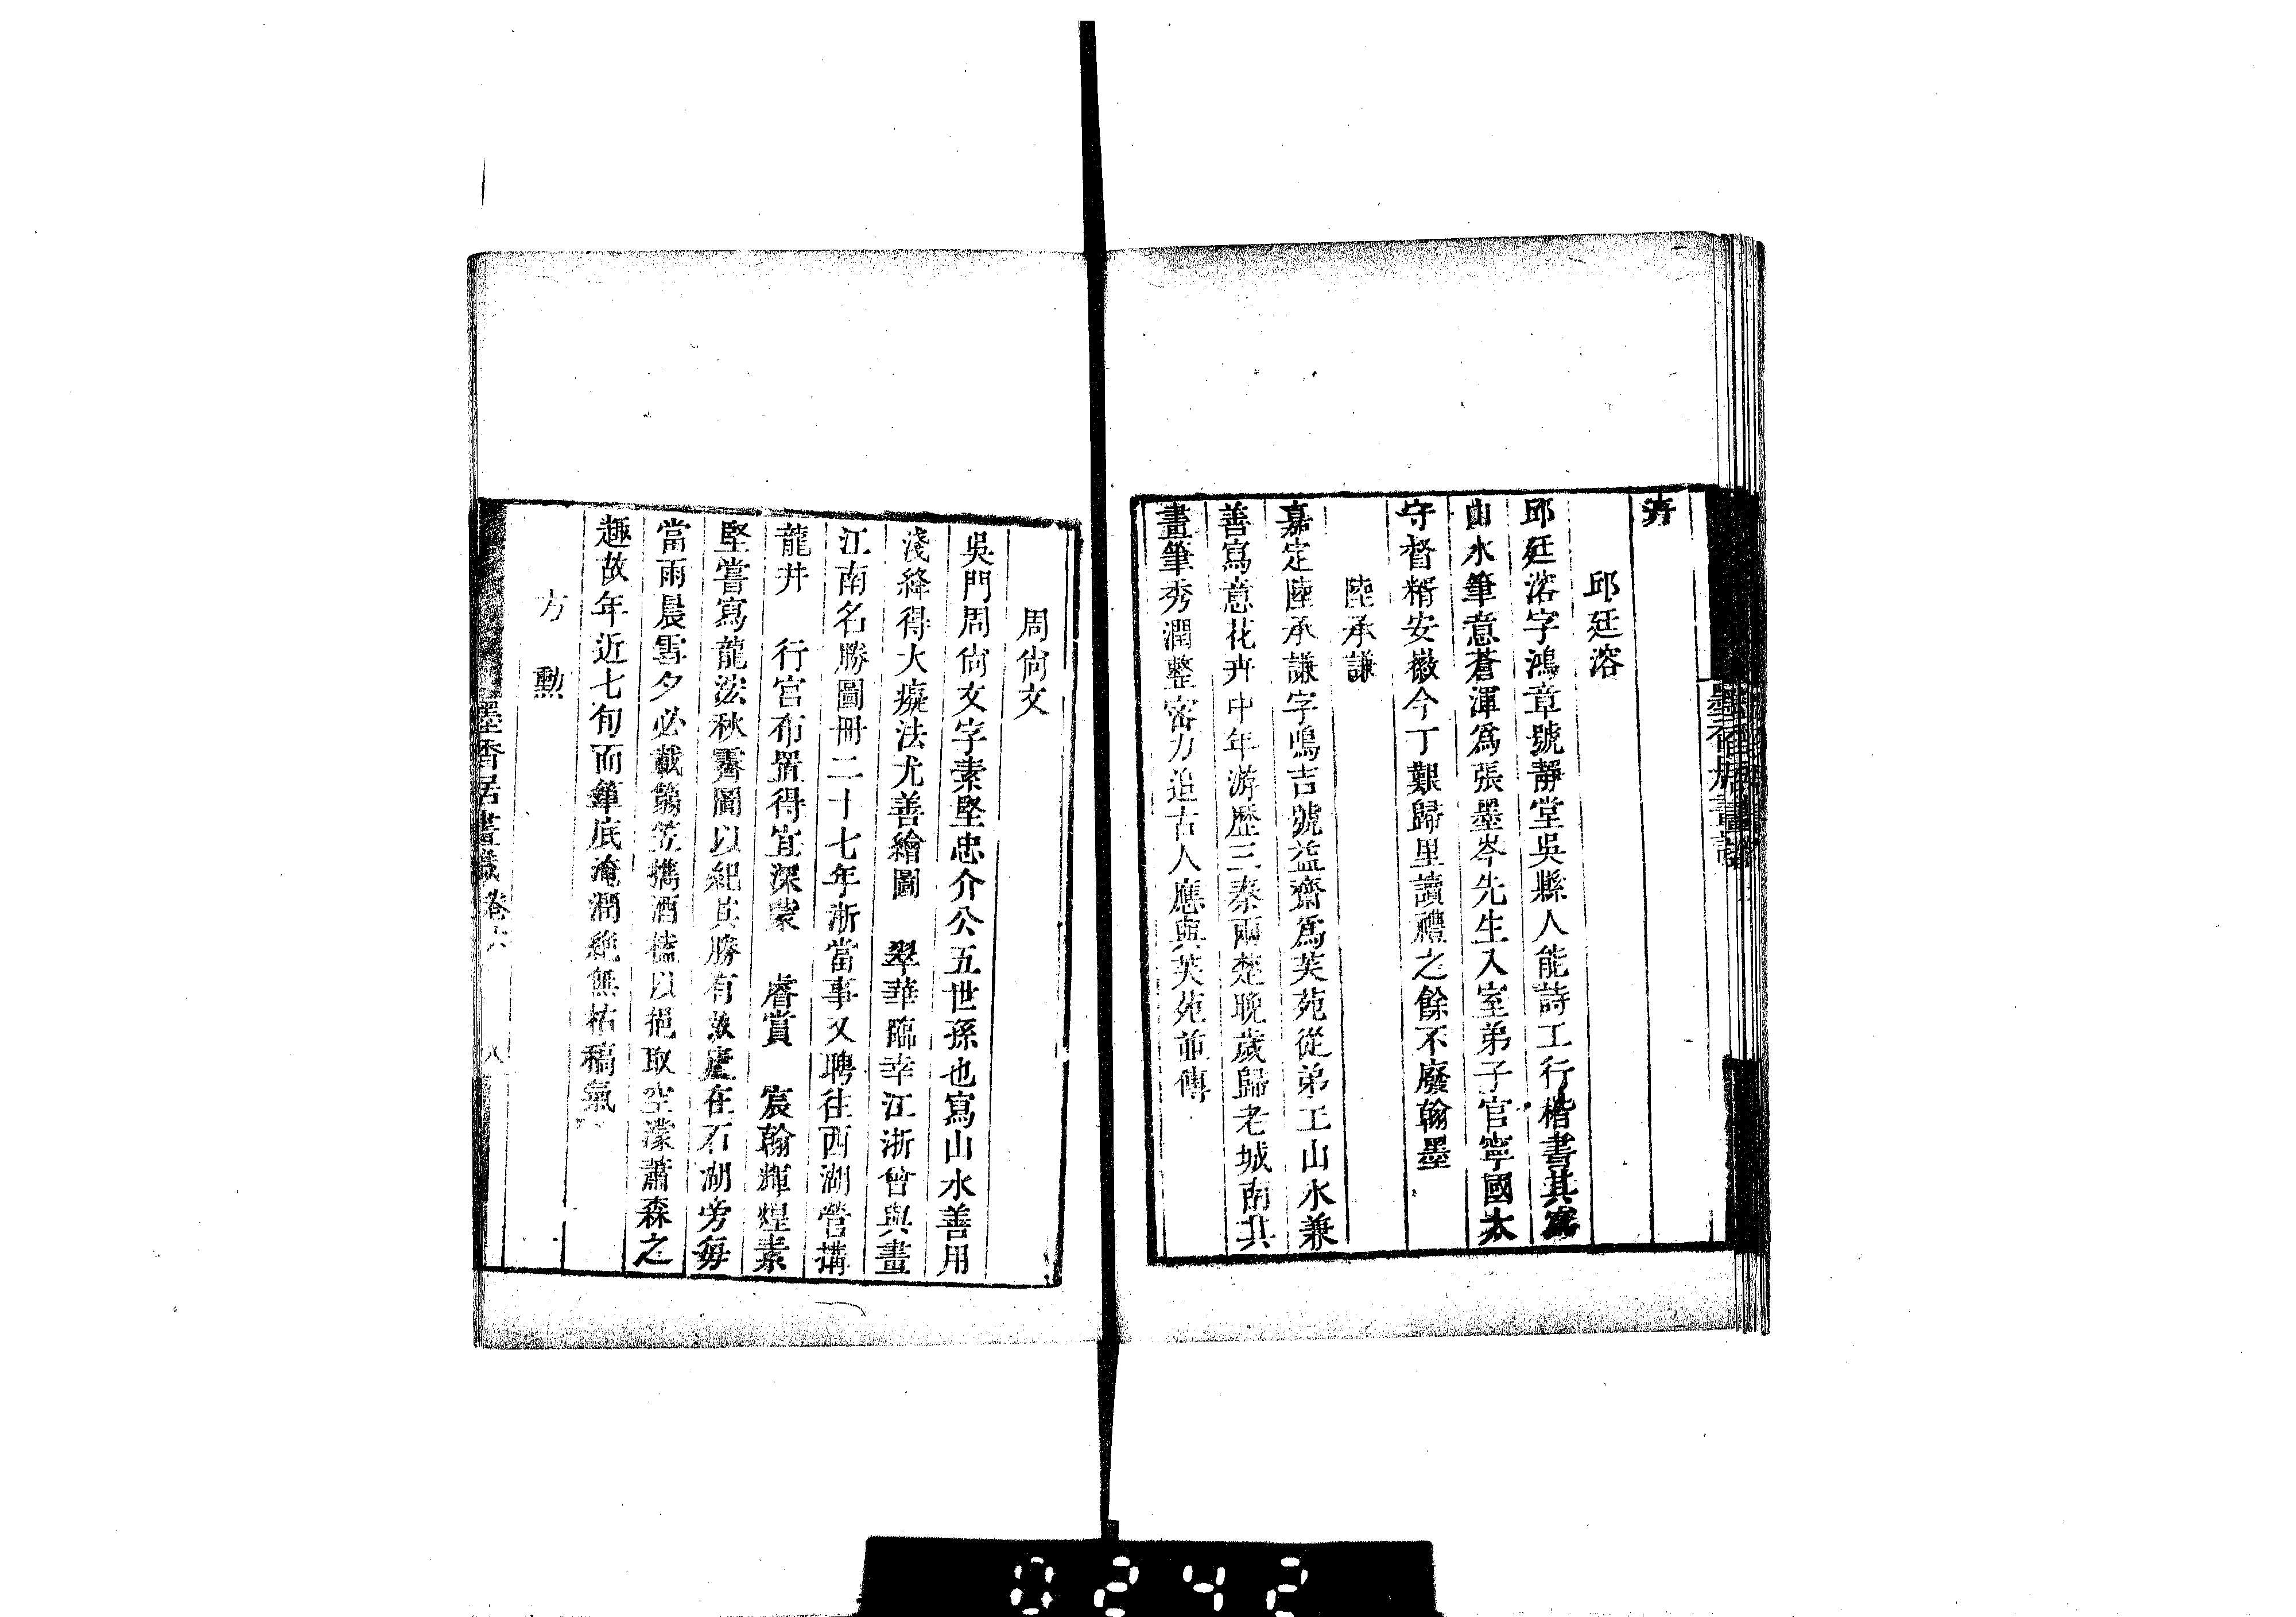 濟
邱廷溶
邱廷溶字鴻章號靜堂吳縣人能詩工行楷書其寫
山水筆意蒼渾爲張墨岑先生入室弟子官寧國太
守督糈安徽今丁艱歸里讀禮之餘不廢翰墨
陸承謙
嘉定陸承謙字鳴吉號益齋爲芙苑從弟工山水兼
善寫意花卉中年游歷三秦兩楚晚歲歸老城南其
畫筆秀潤整密力追古人應與芙苑並傳
墨香居畫識
周尙文
吳門周尙文字素堅忠介公五世孫也寫山水善用
淺絳得大癡法尤善繪圖 翠華臨幸江浙曾與畫
江南名勝圖冊二十七年浙當事又聘往西湖營搆
龍井 行宮布置得宜深蒙 睿賞 宸翰輝煌素
堅嘗寫龍泓秋霽圖以紀其勝有敝廬在石湖旁每
當雨晨雪夕必載篛笠攜酒榼以挹取空濛蕭森之
趣故年近七旬而筆底淹潤絶無枯稿氣
方 勲
墨香居畫識 卷六 八
0242